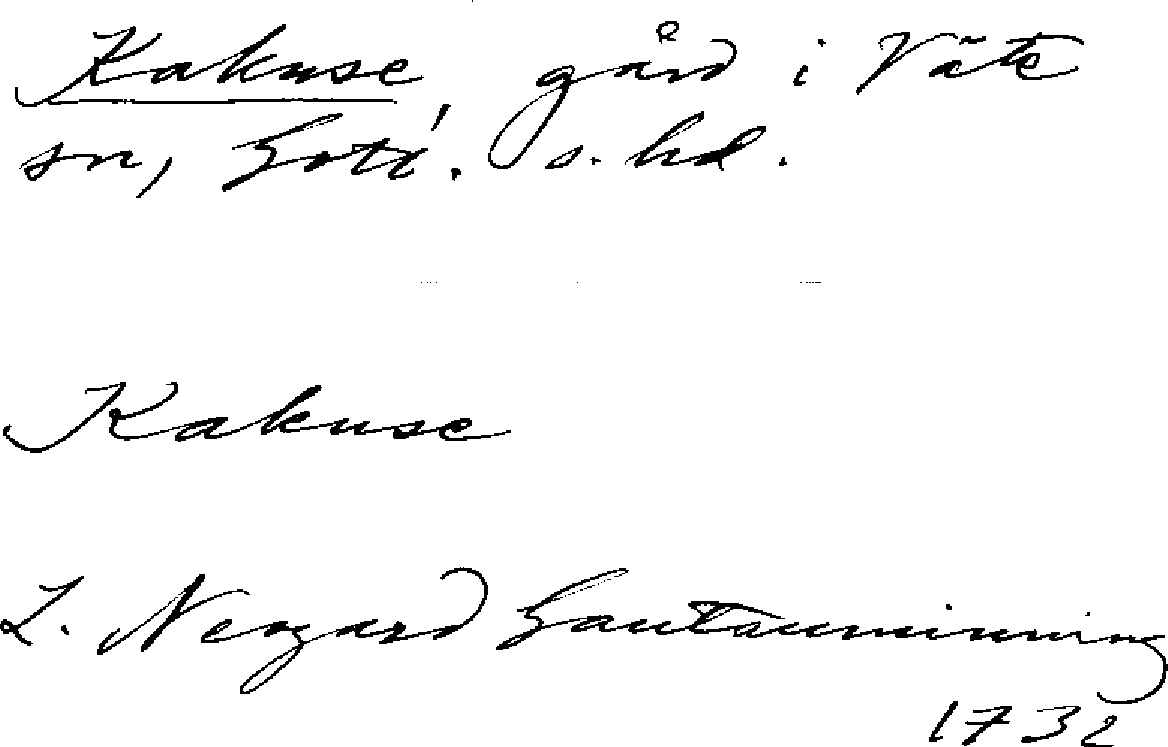 Kakuse, gård i Väte
sn, Gotl. s. hd.
Kakuse
L. Neogard Gautauminning
1732